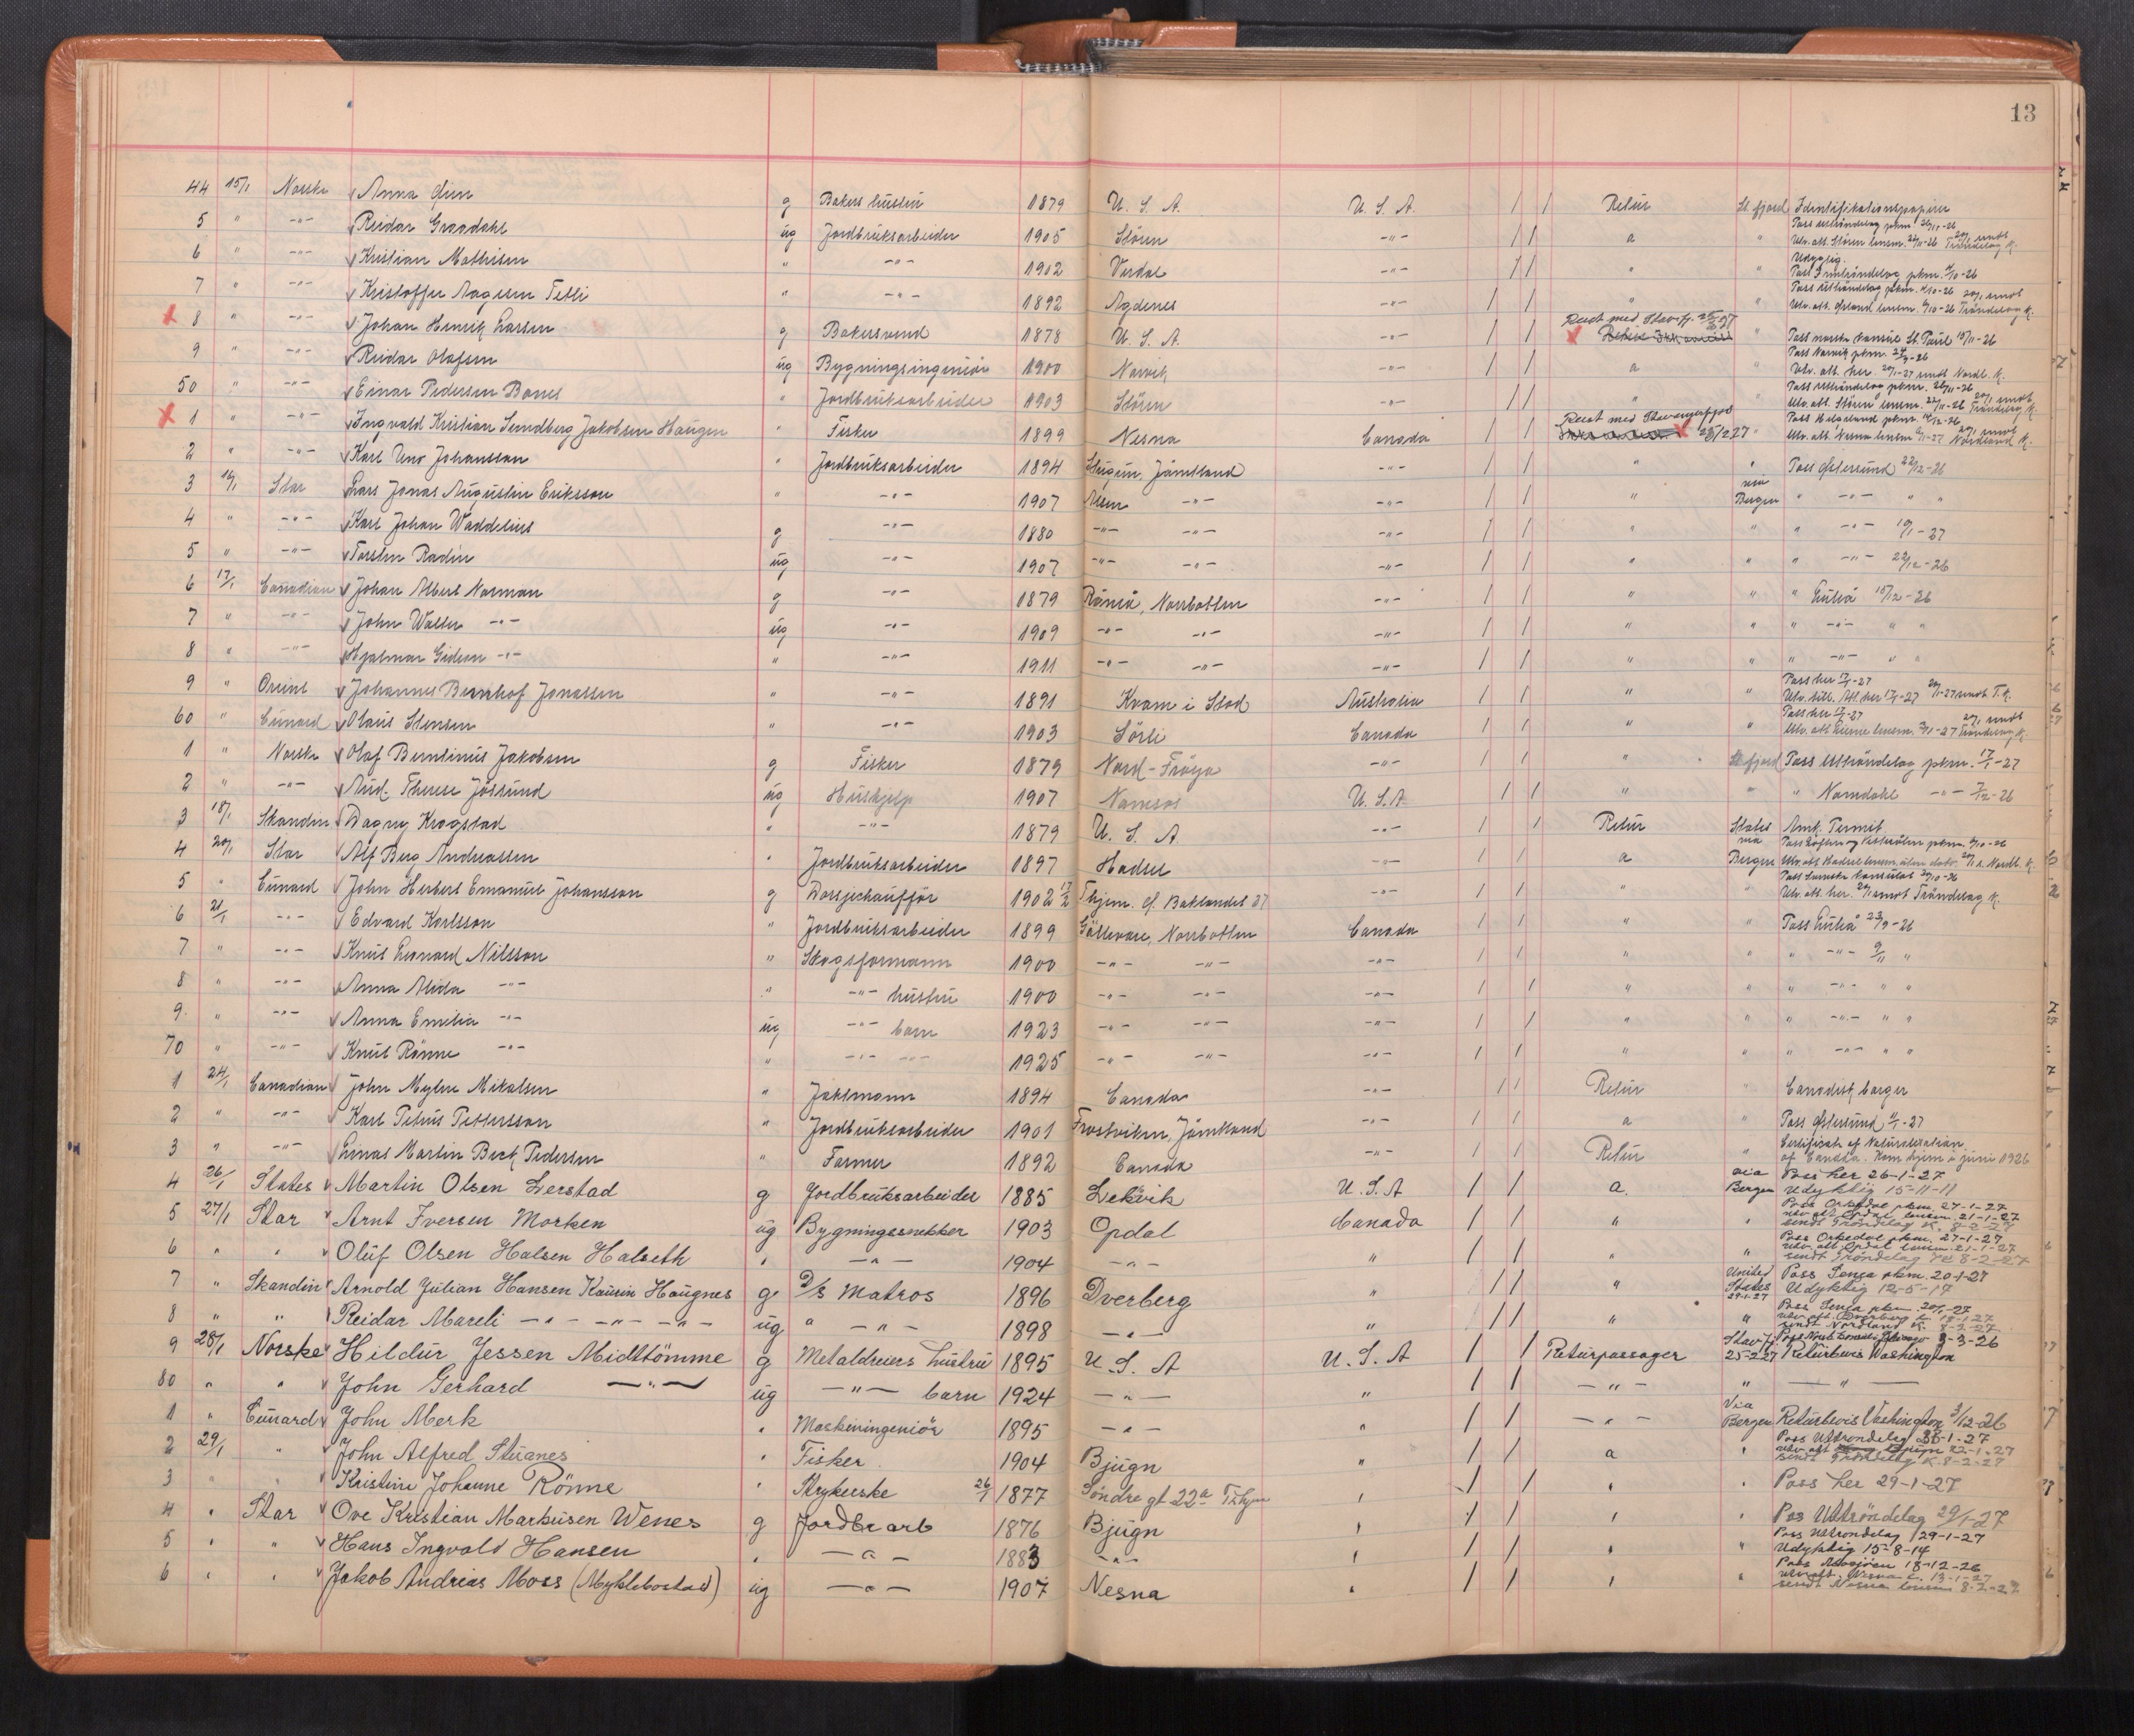 13
44 15/1 Norske Anna g Bakers hustru 1879 U. S. A. U. S. A. / / Retur St.fjord Identifikationspapirer
5 " -"- Reidar Graadahl ug Jordbruksarbeider 1905 Stören -"- / / a " Pass Uttröndelag pkm. 26/11-26 Utv. att. Stören lensm. 22/11-26 20/1 sendt Tröndelag K.
6 " -"- Kristian Mathisen " -"- 1902 Verdal -"- / / " " Udygtig. Pass Inntröndelag pkm. -26
7 " -"- Kristoffer Aagesen Tetli " -"- 1892 Agdenes -"- / / " " Pass Uttröndelag pkm. /10-26 Utv. att. lensm. /10-26 20/1 sendt Tröndelag K.
x 8 " -"- Johan Henrik Larsen g Bakersvend 1878 U. S. A. -"- / / Reist med Stav.fj. " Pass norske konsul St. Paul 15/11-26
9 " -"- Reidar Olafsen ug Bygningsingeniör 1900 Narvik -"- / / a " Pass Narvik pkm. -26 Utv. att. her. 20/1-27 sendt Nordl. K.
50 " -"- Einar Pedersen Bones " Jordbruksarbeider 1903 Stören -"- / / " " Pass Uttröndelag pkm. 26/11-26 Utv. att. Stören lensm. 22/11-26 20/1 sendt Tröndelag K.
x 1 " -"- Ingvald Kristian Sundberg Jakobsen Haugen " Fisker 1899 Nesna Canada / / Reist med Stavangerfjord 25/2 27 " Pass Helgeland pkm. /12-26 Utv. att. Nesna lensm. -27 20/1 sendt Nordland K.
2 " -"- Karl Uno Johansson " Jordbruksarbeider 1894 Stugun, Jämtland -"- / / " " Pass Östersund 22/12-26
3 16/1 Star Lars Jonas Augustin Eriksson " -"- 1907 Alsen -"- -"- / / " via Bergen " -"- " "
4 " -"- Karl Johan Waddelius g -"- 1880 -"- -"- -"- / / " " " -"- 10/1-27
5 " -"- Torsten Radin ug -"- 1907 -"- -"- -"- / / " " " -"- 22/12-26
6 17/1 Canadian Johan Albert Norman g -"- 1879 Råneå, Norrbotten -"- / / " " " Luleå 15/12-26
7 " -"- John Walter -"- ug -"- 1909 -"- -"- -"- / / " " " -"- " "
8 " -"- Hjalmar Gideon -"- " -"- 1911 -"- -"- -"- / / " " " -"- " "
9 " Orient Johannes Bernhof Jonassen " -"- 1891 Kvam i Stod Australia / / " " Pass her 17/1-27 Utv. till. Att. her 17/1-27 20/1-27 sendt T.K.
60 " Cunard Olaus Stensen " -"- 1903 Sörli Canada / / " " Pass her 17/1-27 Utv. att. Lierne lensm. -27 20/1 sendt Tröndelag K.
1 " Norske Olaf Berntinus Jakobsen g Fisker 1879 Nord-Fröya -"- / / " St.fjord Pass Uttröndelag pkm. 17/1-27
2 " -"- Aud. Therese Jössund ug Hushjelp 1907 Namsos U. S. A / / " " " Namdahl -"- 7/12-26
3 18/1 Skandin Dagny Krogstad " -"- 1879 U. S. A. -"- / / Retur States Amk. Permit
4 20/1 Star Alf Berg Andreassen " Jordbruksarbeider 1897 Hadsel -"- / / a via Bergen Pass Lofoten og Vesterålen pkm. /10-26 Utv. att. Hadsel lensm. uten dato. 20/1 s. Nordl. K.
5 " Cunard John Herbert Emanuel Johansson g Drosjechaufför 1902 17/2 Thjem. ö. Baklandet 37 -"- / / " " Pass Svenske konsulat /10-26 Utv. att. her. 20/1 sendt Tröndelag K.
6 21/1 -"- Edvard Karlsson " Jordbruksarbeider 1899 Gällevare, Norrbotten Canada / / " " Pass Luleå 23/9-26
7 " -"- Knut Leonard Nilsson " Skogsformann 1900 -"- -"- -"- / / " " " -"- 9/11 "
8 " -"- Anna Alida -"- " -"- hustru 1900 -"- -"- -"- / / " " " -"- " "
9. " -"- Anna Emilia -"- ug -"- barn 1923 -"- -"- -"- / / " " " -"- " "
70 " -"- Knut Rönne -"- " -"- -"- 1925 -"- -"- -"- / / " " " -"- " "
1 24/1 Canadian John Myhre Mikalsen " Jaktmann 1894 Canada -"- / / Retur " Canadisk borger
2 " -"- Karl Petrus Pettersson " Jordbruksarbeider 1901 Frostviken, Jämtland -"- / / a " Pass Östersund -27
3 " -"- Linas Martin Beck Pedersen " Farmer 1892 Canada -"- / / Retur " Sertifikat of Naturaliration of Canada. Kom hjem i juni 1926
4 26/1 States Martin Olsen Lerstad g Jordbruksarbeider 1885 Leksvik U. S. A / / a. via Bergen Pass her 26-1-27 Udyktig 15-11-11
5 27/1 Star Arnt Iversen Morken ug Bygningssnekker 1903 Opdal Canada / / " " Pass Orkedal pkm. 27-1-27 utv. att Opdal lensm. 21-1-27 sendt Tröndelag K. 8-2-27
6 " " Oluf Olsen Halsen Halseth " -"- 1904 -"- " / / " " Pass Orkedal pkm. 27-1-27 utv. att Opdal lensm. 21-1-27 sendt Tröndelag K. 8-2-27
7 " Skandin Arnold Julian Hansen Kaurin Haugnes g D/s Matros 1896 Dverberg " / / " United States 29-1-27 Pass Senja pkm. 20-1-27 Udyktig 12-5-17
8 " " Reidar Mareli -"- -"- -"- ug " -"- 1898 -"- " / / " " Pass Senja pkm. 20/1-27 utv. att Dverberg L. 18-1-27 sendt Nordland K. 8-2-27
9 28/1 Norske Hildur Jessen Midttömme g Metaldreiers hustru 1895 U. S. A U. S. A / / Returpassager Stav.fj. 25-2-27 Pass Norsk konsul Chicago 3-3-26 Returbevis Washington
80 " " John Gerhard -"- ug -"- barn 1924 -"- " / / -"- " -"-
1 " Cunard John Merk " Maskiningeniör 1895 -"- " / / -"- Via Bergen Returbevis Washington 3/12-26
2 29/1 " John Alfred Stuanes " Fisker 1904 Bjugn " / / a " Pass Uttröndelag 25-1-27 utv. att Bjugn 22-1-27 sendt Tröndelag K. 8-2-27
3 " " Kristine Johanne Rönne " Strykerske 26/1 1877 Söndre gt 22a Trhjem " / / " " Pass her 29-1-27
4 " Star Ove Kristian Markusen Wenes g Jordbr arb 1876 Bjugn " / / " " Pass Uttröndelag 29/1-27
5 " " Hans Ingvald Hansen " -"- 1883 -"- " / / " " Pass Uttröndelag 29-1-27 Udyktig 15-8-14
6 " " Jakob Andreas Moss (Myklebostad) ug -"- 1907 Nesna " / / " " Pass Mosjöen 18-12-26 utv. att. Nesna L. 13-1-27 sendt Nesna lensm 8-2-27